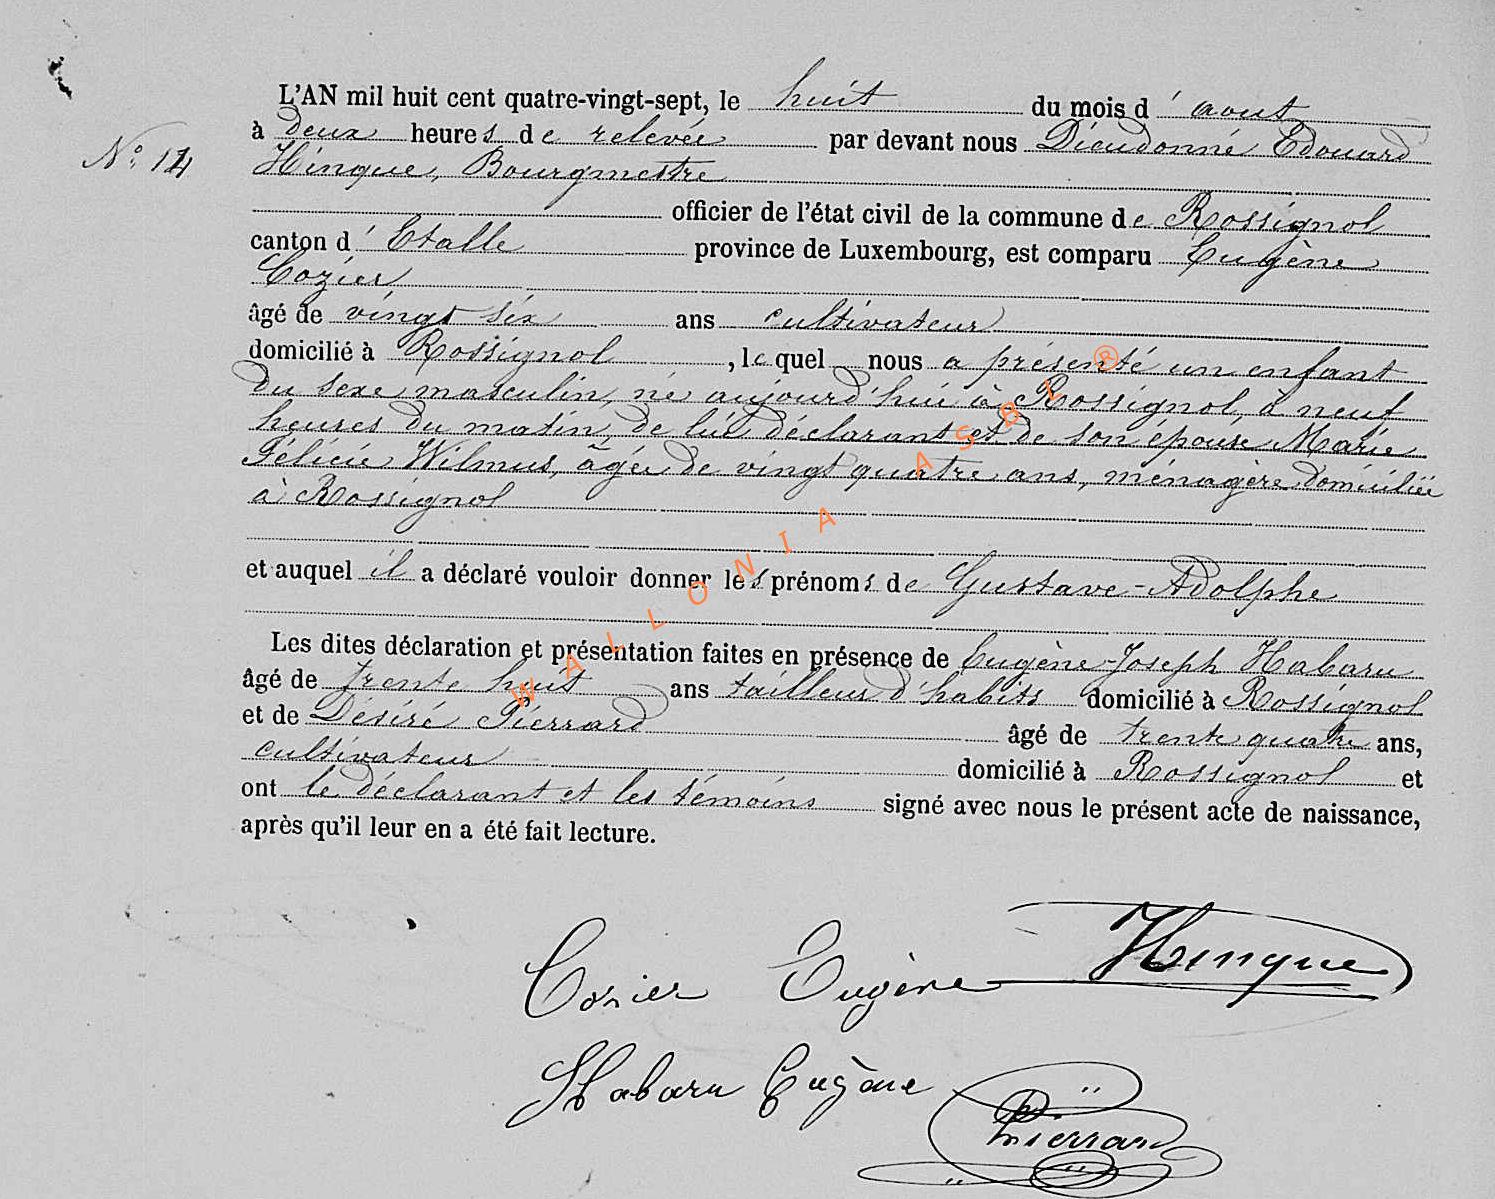 L'AN mil huit cent quatre-vingt-sept, le huit du mois d'aout
N° 14
à deux heures de relevée par devant nous Dieudonné Edouard
Hinque, Bourgmestre
officier de l'état civil de la commune de Rossignol
canton d'Etalle province de Luxembourg, est comparu Eugène
Cozier
âgé de vingt six ans cultivateur
domicilié à Rossignol, lequel nous a présenté un enfant
du sexe masculin, né aujourd'hui à Rossignol, à neuf
heures du matin, de lui déclarant et de son épouse Marie
Félicie Wilmus, âgée de vingt quatre ans, ménagère domiciliée
à Rossignol
et auquel il a déclaré vouloir donner les prénoms de Gustave-Adolphe
Les dites déclaration et présentation faites en présence de Eugène-Joseph Habaru
âgé de trente huit ans tailleur d'habits domicilié à Rossignol
et de Désiré Pierrard âgé de trente quatre ans,
cultivateur domicilié à Rossignol et
ont le déclarant et les témoins signé avec nous le présent acte de naissance,
après qu'il leur en a été fait lecture.
Cozier Eugène Hinque
Habaru Eugène
Pierrard
WALLONIA ASBL ®